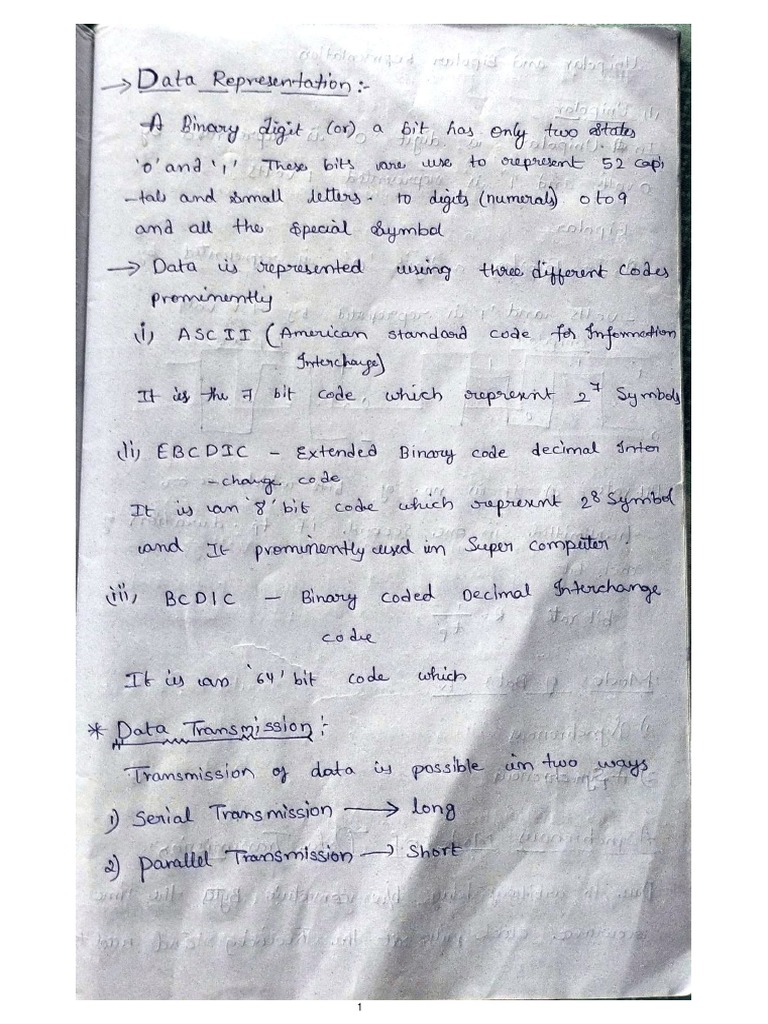 → Data Representation :-
A Binary digit (or) a bit has only two states
'0' and '1' These bits are use to represent 52 capi
-tal and small letters. 10 digits (numerals) 0 to 9
and all the special symbol
→ Data is represented using three different codes
prominently
(i) ASCII (American standard code for Information
Interchange)
It is the 7 bit code, which represent 2^7 Symbols
(ii) EBCDIC - Extended Binary code decimal Inter
-change code
It is an '8' bit code which represent 2^8 Symbol
and It prominently used in Super computer.
(iii) BCDIC - Binary coded Decimal Interchange
code
It is an '64' bit code which
* Data Transmission :-
Transmission of data is possible in two ways
1) Serial Transmission → long
2) parallel Transmission → Short
1